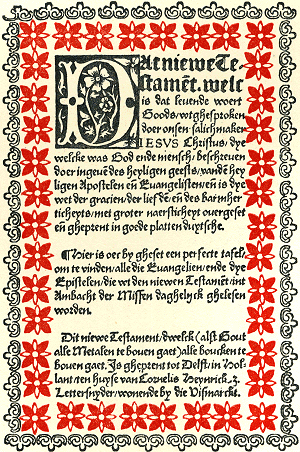 Dat niewe Te-
stamẽt. welc
is dat leuende woert
Goods/ wtghesproken
doer onsen salichmaker
IESVS Christus/ dye
welcke was God ende mensch/ beschreuen
doer ingeuẽ des heyligen geests/ vandẽ hey
ligen Apostelen eñ Euangelisten/ eñ is dye
wet der gracien/ der liefdẽ eñ des barmher
ticheyts/ met groter naersticheyt ouergeset
eñ gheprent in goede platten duytsche.
Hier is oer by gheset een perfecte tafel/
om te vinden/ alle die Euangelien/ ende dye
Epistelen/ die wt den niewen Testamẽt/ int
Ambacht der Missen daghelyck ghelesen
worden.
Dit niewe Testament/ dwelck (als Gout
alle Metalen te bouen gaet) alle boucken te
bouen gaet/ Is gheprent tot Delft/ in Hol-
lant/ ten huyse van Cornelis Heynrick. z.
Lettersnyder/ wonende by die Vismarckt.